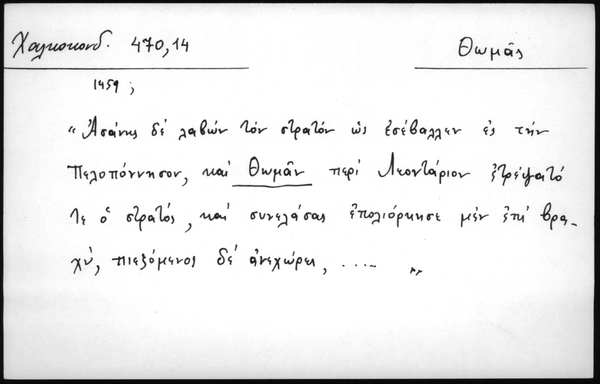 Χαλκοκονδ. 470,14
Θωμᾶς
1459 ;
"Ἀσάνης δέ λαβών τόν στρατόν ὡς ἐσέβαλλεν ἐς τήν
Πελοπόννησον, καί Θωμᾶν περί Λεοντάριον ἐτρέψατό
τε ὁ στρατός, καί συνελάσας ἐπολιόρκησε μέν ἐπί βρα-
χύ, πιεζόμενος δέ ἀνεχώρει, ..... "